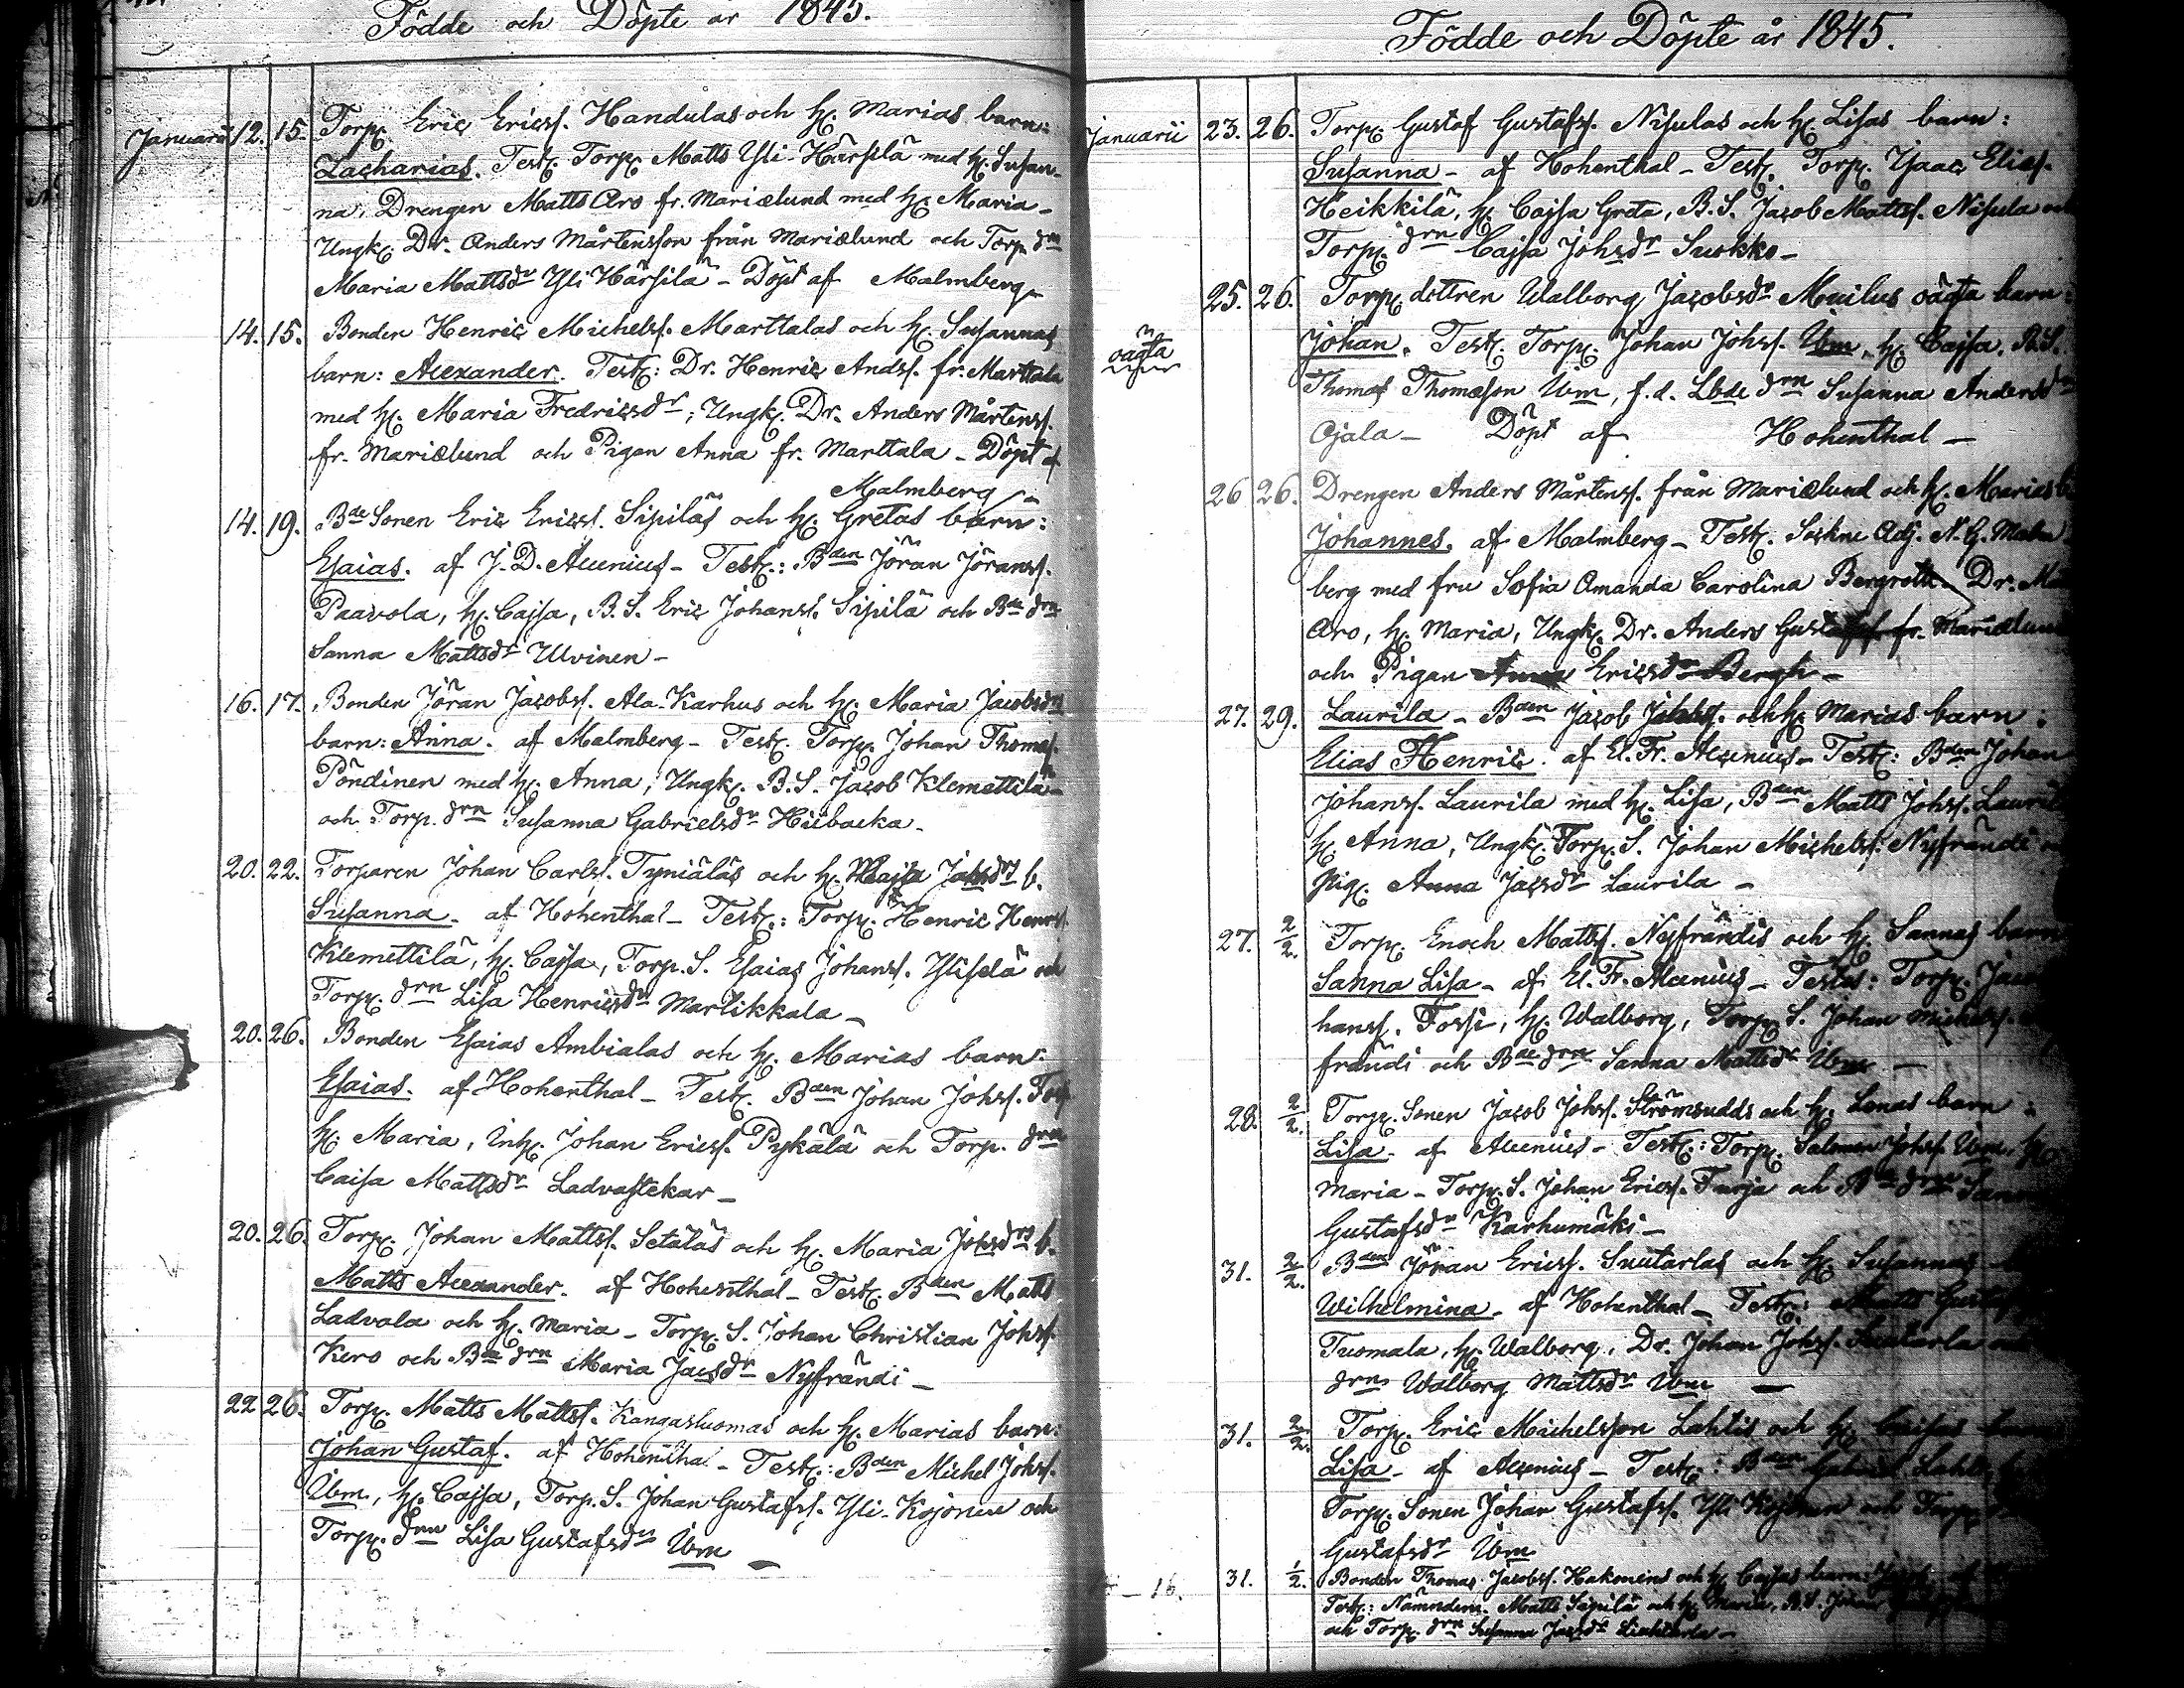 Födde och Döpte år 1845.
Januarii 12. 15. Torp. Eric Ericss. Handulas och h. Marias barn:
Zacharias. Test. Torp. Matts Yli-Härsilä med h. Susan-
na, Drengen Matts Aro fr. Mariælund med h. Maria -
Ungk. Dr. Anders Mårtensson från Mariælund och Torp. drn
Maria Mattsdr Yli Härsilä - Döpt af Malmberg
14. 15. Bonden Henric Michelss. Marttalas och h. Susannas
barn: Alexander. Test: Dr. Henric Andss. fr. Marttala
med h. Maria Fredricsdr; Ungk. Dr. Anders Mårtenss.
fr. Mariælund och Pigan Anna fr. Marttala - Döpt af
Malmberg -
14. 19. Bde Sonen Eric Ericss. Sipiläs och h. Gretas barn:
Esaias. af J. D. Alcenius - Test: Bden Jöran Jöranss.
Paavola, h. Cajsa, B. S. Eric Johanss. Sipilä och Bde drn
Sanna Mattsdr Uvinen -
16. 17. Bonden Jöran Jacobss. Ala-Karhus och h. Maria Jacobsdrs
barn: Anna. af Malmberg - Test. Torp. Johan Thomass.
Pöndinen med h. Anna, Ungk. B. S. Jacob Klemettilä -
och Torp. drn Susanna Gabrielsdr Hiibacka -
20. 22. Torparen Johan Carlss. Tyniäläs och h. Cajsa Johsdrs b.
Susanna - af Hohenthal - Test: Torp. Henric Henrss.
Klemettilä, h. Cajsa, Torp. S. Esaias Johanss. Yliselä och
Torp. drn Lisa Henricsdr Martikkala -
20. 26. Bonden Esaias Ambialas och h. Marias barn:
Esaias. af Hohenthal - Test. Bden Johan Johss.
h. Maria, Inh. Johan Ericss. Pykälä och Torp. drn
Caisa Mattsdr Ladvastekar -
20. 26. Torp. Johan Mattss. Setäläs och h. Maria Johsdrs b.
Matts Alexander. af Hohenthal - Test. Bden Matts
Ladvala och h. Maria - Torp. S. Johan Christian Johss.
Kero och Bde drn Maria Jacsdr Nyfrändi -
22 26. Torp. Matts Mattss. Kangasluomas och h. Marias barn:
Johan Gustaf. af Hohenthal - Test: Bden Michel Johss.
Ibm, h. Cajsa, Torp. S. Johan Gustafss. Yli-Kojonen och
Torp. drn Lisa Gustafsdr Ibm -
Födde och Döpte år 1845.
Januarii 23. 26. Torp. Gustaf Gustafss. Nisulas och h. Lisas barn:
Susanna - af Hohenthal - Test. Torp. Isaac Eliess.
Heikkilä, h. Cajsa Greta, B. S. Jacob Mattss. Nisula och
Torp. drn Cajsa Johsdr Suokko -
25. 26. Torp. dottren Walborg Jacobsdr Muilus oägta barn:
oägta
Johan. Test. Torp. Johan Johss. Ibm, h. Cajsa. B. S.
Thomas Thomasson Ibm, f. d. Lbde drn Susanna Andersdr
Ojala - Döpt af Hohenthal -
26 26. Drengen Anders Mårtenss. från Mariælund och h. Marias
Johannes. af Malmberg - Test. Sockne Adj. N. G. Malm-
berg med fru Sofia Amanda Carolina Bergroth - Dr.
Aro, h. Maria, Ungk. Dr. Anders Gustafss. fr. Mariælund
och Pigan Anna Ericsdr Bergh -
27. 29. Laurila - Bden Jacob och h. Marias barn:
Elias Henric. af El. Fr. Alcenius - Test: Bden Johan
Johanss. Laurila med h. Lisa, Bden Matts Johss. Laurila
h. Anna, Ungk. Torp. S. Johan Michelss. Nyfrändi
Pig. Anna Jacsdr Laurila -
27. 2/2. Torp. Enoch Mattss. Nyfrändis och h. Sannas barn
Sanna Lisa - af El. Fr. Alcenius - Testes: Torp.
hanss. Forsi, h. Walborg, Torp. S. Johan Michelss.
frändi och Bde drn Sanna Mattsdr Ibm -
28. 2/2. Torp. Sonen Jacob Johss. Strömsudds och h. Lenas barn:
Lisa - af Alcenius - Test: Torp. Salomon Johss. Ibm, h.
Maria - Torp. S. Johan Ericss. Turja och Bde drn
Gustafsdr Karhumäki -
31. 2/2. Bden Jöran Ericss. Suutarlas och h. Susannas
Wilhelmina - af Hohenthal - Test: Matts
Tuomala, h. Walborg, Dr. Johan Johss. Suutarla
drn Walborg Mattsdr Ibm -
31. 2/2. Torp. Eric Michelsson Lahtis och h. Caisas
Lisa - af Alcenius - Test: Bden Gabriel
Torp. Sonen Johan Gustafss. Yli Kojonen och Torp.
Gustafsdr Ibm
- 16. 31. 1/2. Bonden Thomas Jacobss. Hakonens och h. Cajsas barn:
Test: Nämndem. Matts Sipilä och h. Maria, B. S.
och Torp. drn Susanna Jacsdr